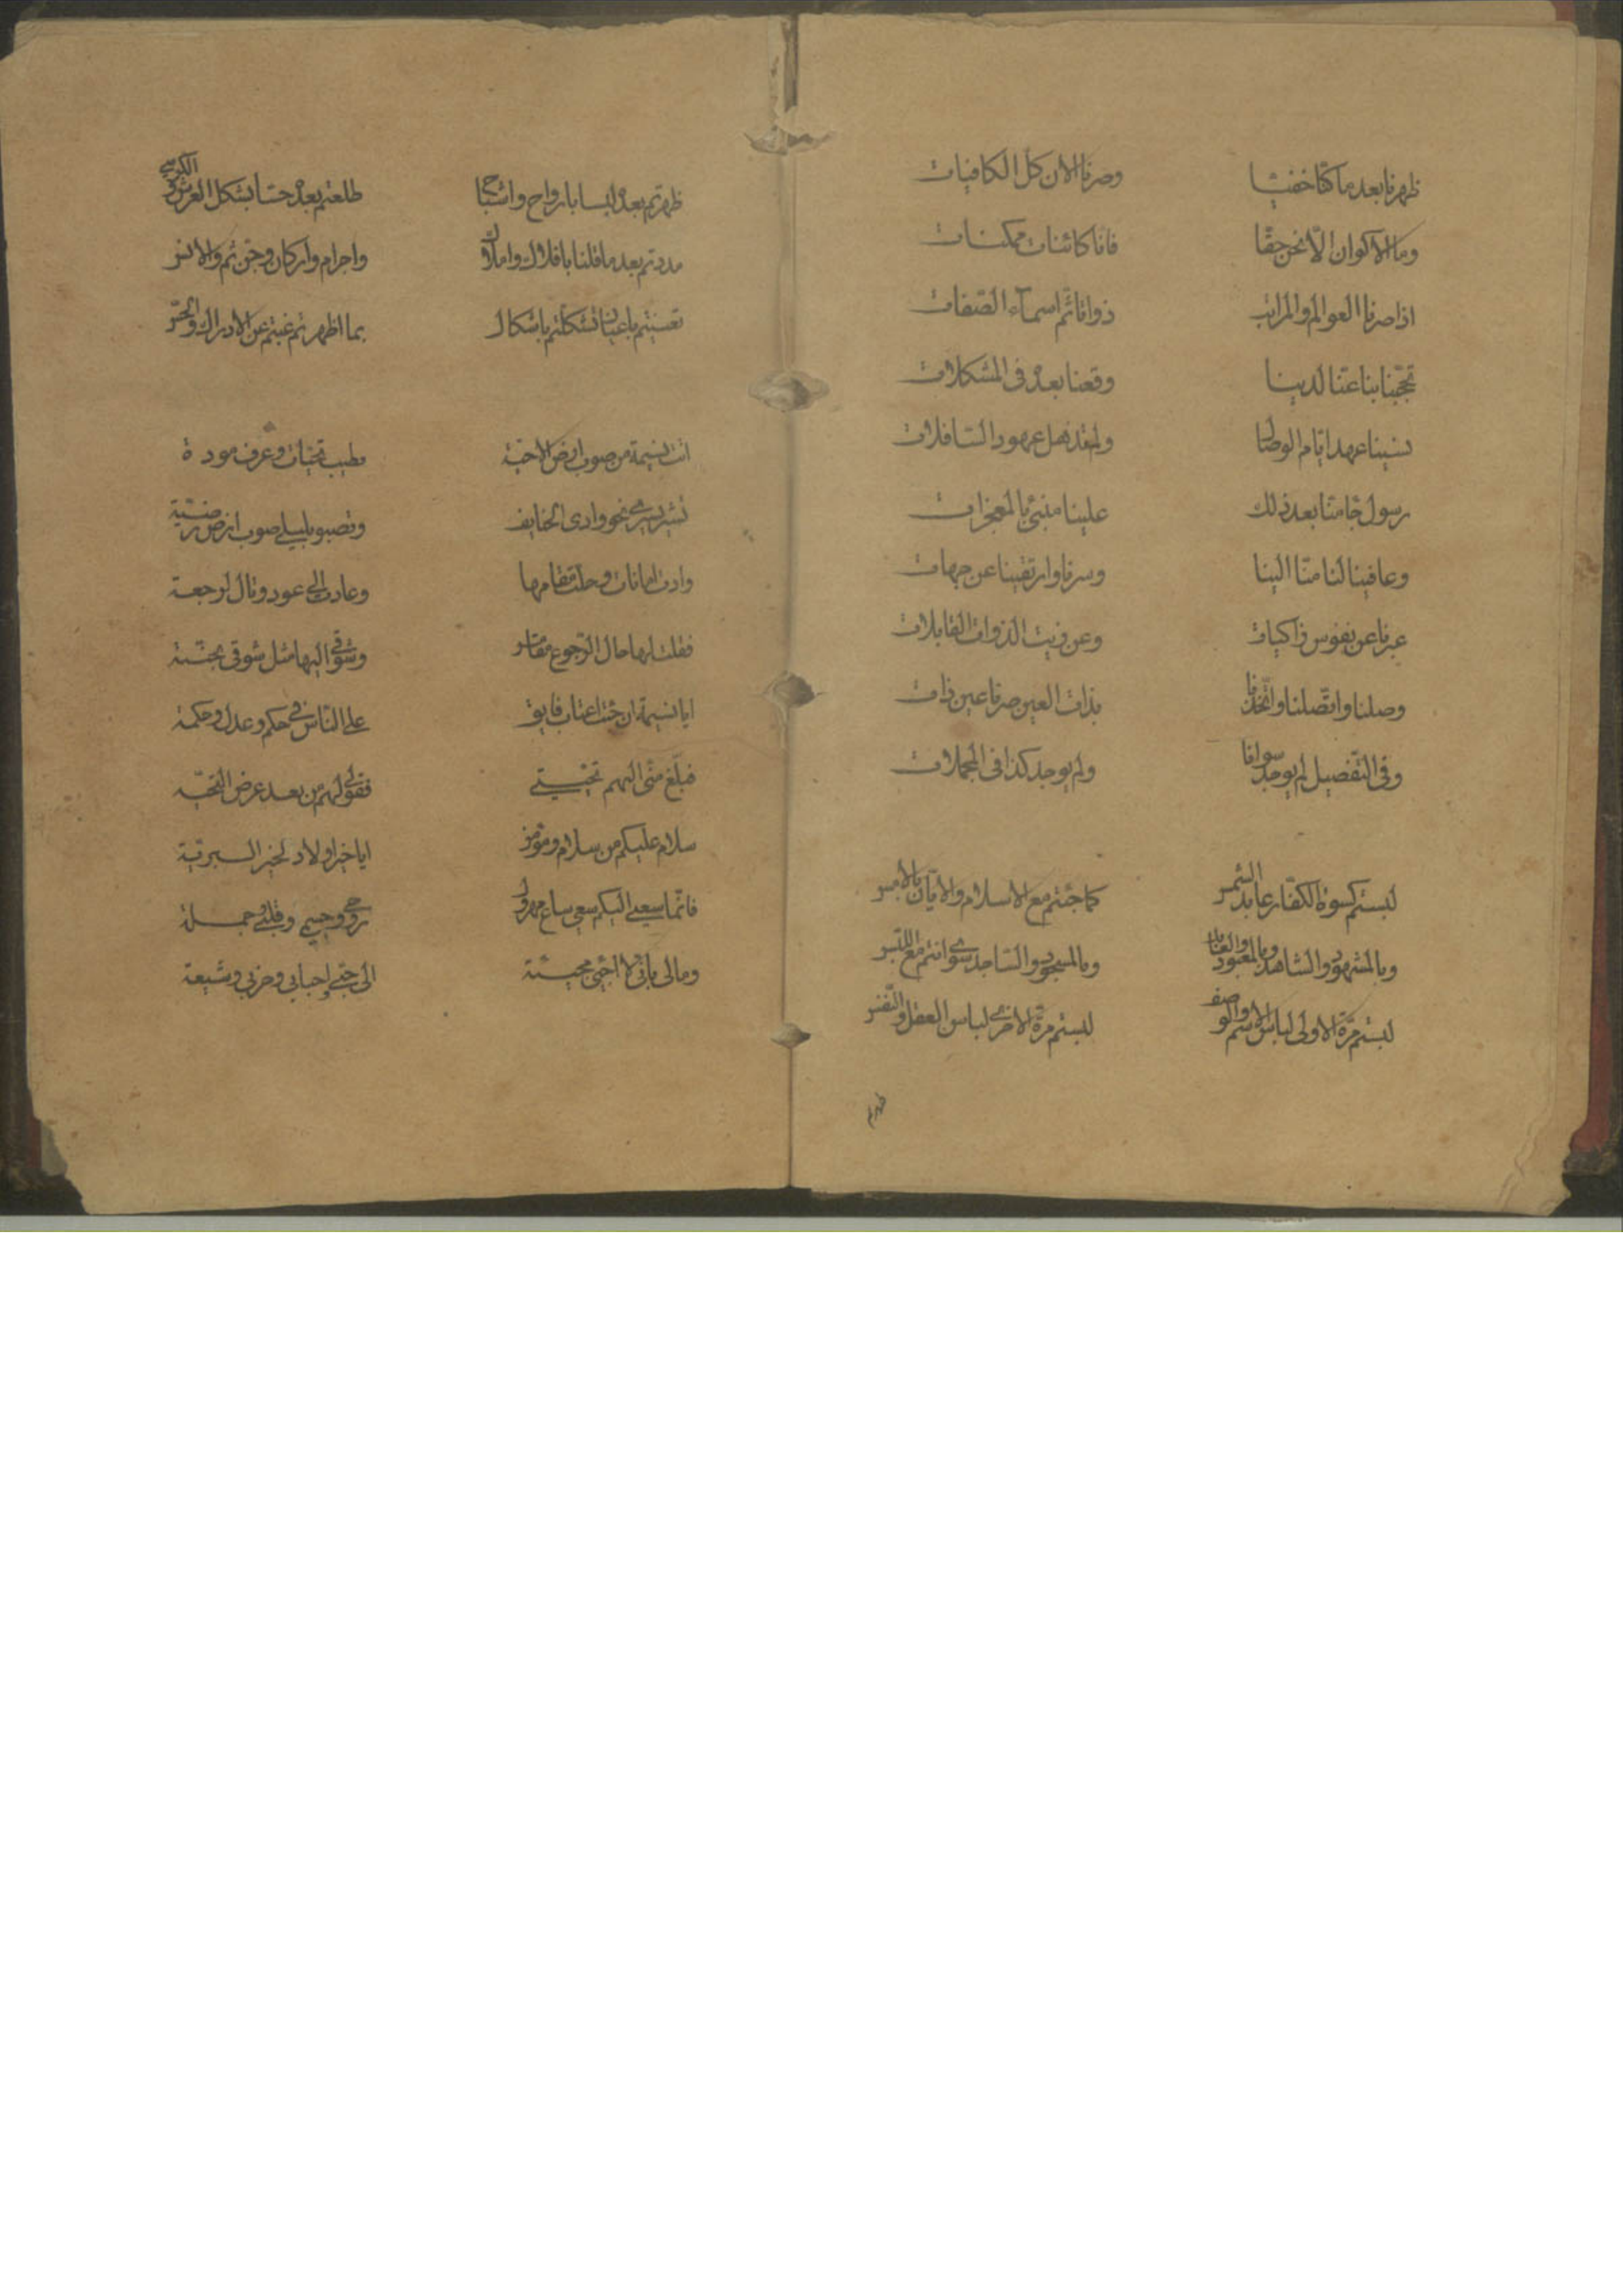 ظهرنا بعد ما كنّا خفيّا وصرنا الان كل الكافيات
وما الاكوان الّا نحن حقّا فانا كائنات ممكنات
اذا صرنا العوالم والمراتب ذواتا ثم اسماء الصّفات
تحجّبنا بنا عنّا لدينا وقعنا بعدُ فى المشكلات
نسينا عهد ايّام الوصال عهود السّافلات
رسول جا منّا بعد ذلك علينا منبئ بالمعجزات
وعافينا لنا منّا الينا وسرنا وارتقينا عن جهات
عبرنا عن نفوس زاكيات وعن زيت الذوات القابلات
وصلنا واتّصلنا واتّخذنا بذات العين صرنا عين ذات
وفى التّفصيل لم يوجد سوانا ولم يوجد كذا فى المجملات
لبستم كسوة الكفّار عابد الشمس كما جئتم مع الاسلام والايمان بالامس
وبالمشهود والشاهد وبالمعبود والعابد وبالمسجود والسّاجد سوى انتم مع اللبس
لبستم مرّة الاولى لباس الاسم والوصف لبستم مرّة الاخرى لباس العقل والنّفس
ظهرتم
ظهرتم بعدُ لبسا بارواح واشباح طلعتم بعدُ حسّا بشكل العرش والكرسى
مددتم بعد ما قلنا بافلاك واملاك واجرام واركان وجن ثم والانس
تعينتم باعيان تشكلتم باشكال بما اظهرتم غبتم عن الادراك والحسّ
اتت نسيمة من صوب ارض الاحبّة بطيب تحيّات وعرف مودة
نحو وادى وتصبو بليلى صوب ارض
وادت امانات وحلّت مقامها وعادت الى عود ومال لرجعة
فقلت لها حال الرّجوع وشوقى اليها مثل شوقى بجنّة
ايا نسيمة ان جئت اعتاب فايق على النّاس فى حكم وعدل وحكمة
فبلّغ منّى اليهم تحيّتى فقولى لهم من بعد عرض التّحيّة
سلام عليكم من سلام ومؤمن ايا خير اولاد لخير البريّة
فانّما سعيى اليكم سعى ساع مهرول روحى وجسمى وقلبى وجملة
ومالى بانّى لا اجئ مجيئة الى جنّتى احبابى وحزبى وشيعة